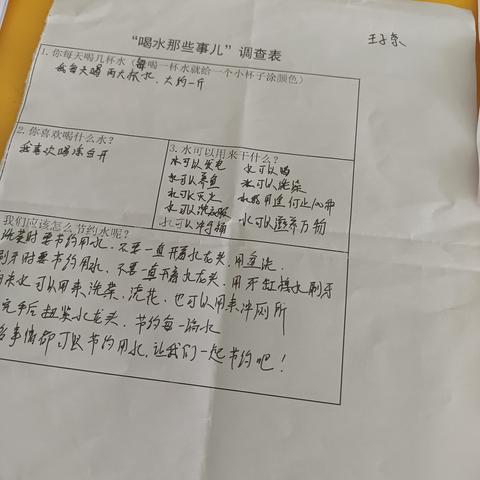 王子京
“喝水那些事儿”调查表
1. 你每天喝几杯水（每喝一杯水就给一个小杯子涂颜色）
我每天喝两大杯水，大约一斤
2. 你喜欢喝什么水？
我喜欢喝凉白开
3. 水可以用来干什么？
水可以发电 水可以喝
水可以养鱼 水可以洗澡
水可以灭火 水的用途何止这些
水可以洗衣服
水可以冲马桶 水可以滋养万物
我们应该怎么节约水呢？
洗菜时要节约用水，不要一直开着水龙头，用盆洗
刷牙时要节约用水，不要一直开着水龙头，用牙缸接水刷牙
水可以用来洗菜、浇花，也可以用来冲厕所
完手后扭紧水龙头，节约每一滴水
事情都可以节约用水，让我们一起节约吧！